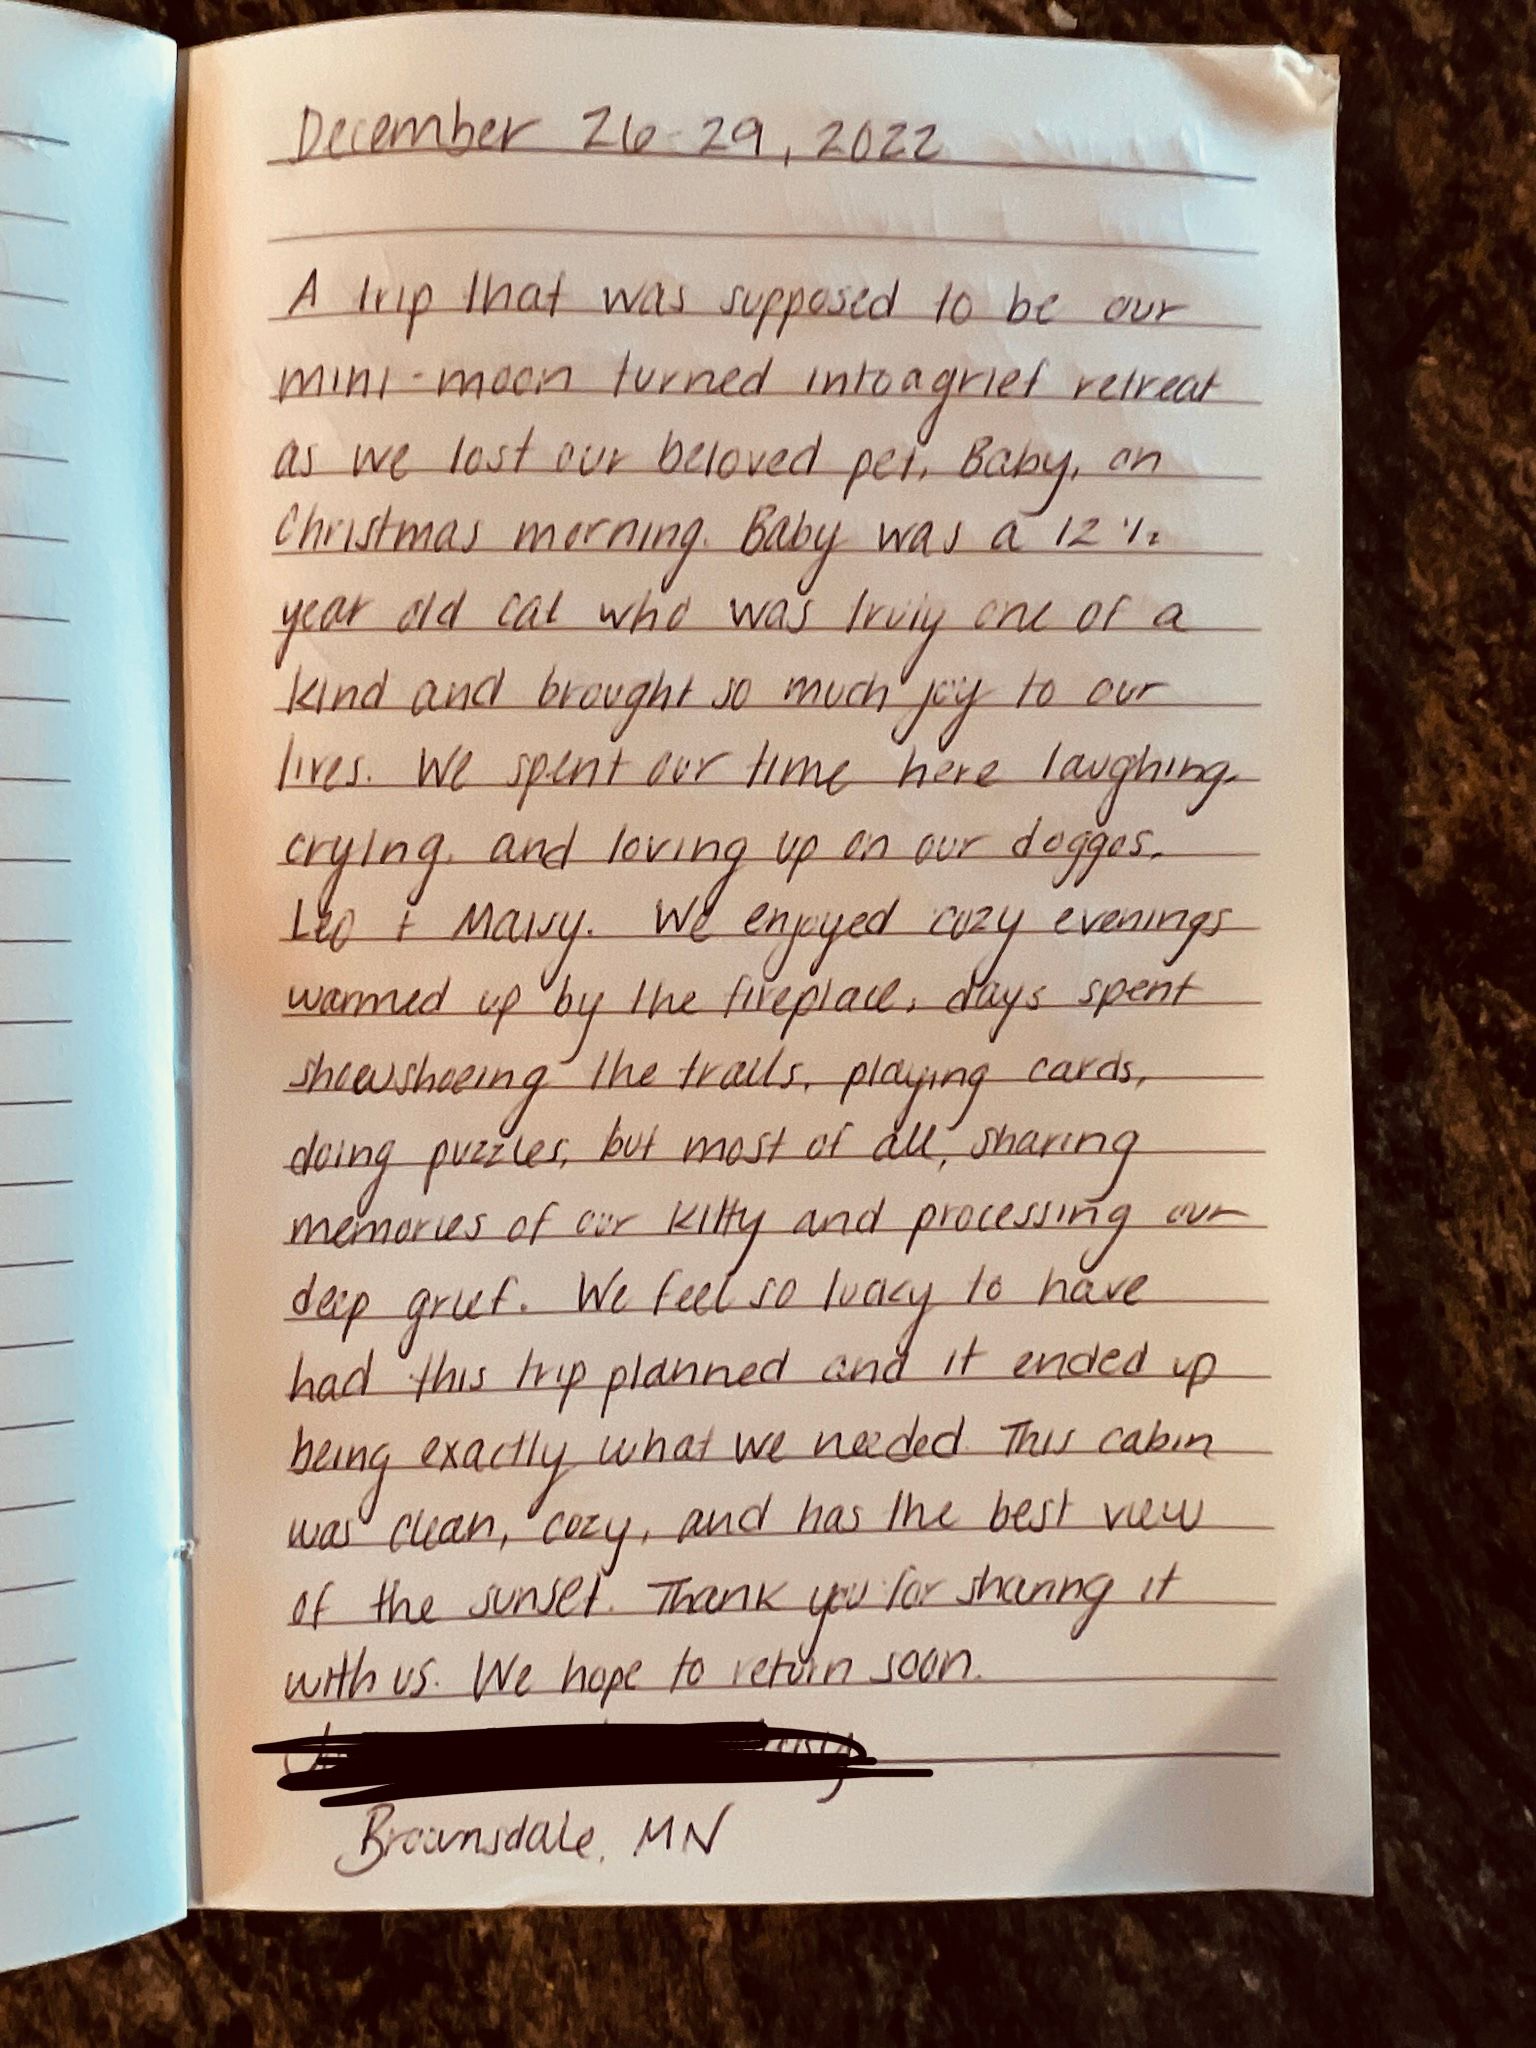 December 26-29, 2022
A trip that was supposed to be our
mini-moon turned into a grief retreat
as we lost our beloved pet, Baby, on
Christmas morning. Baby was a 12 1/2
year old cat who was truly one of a
kind and brought so much joy to our
lives. We spent our time here laughing,
crying, and loving up on our doggos,
Leo + Maisy. We enjoyed cozy evenings
warmed up by the fireplace, days spent
snowshoeing the trails, playing cards,
doing puzzles, but most of all, sharing
memories of our kitty and processing our
deep grief. We feel so lucky to have
had this trip planned and it ended up
being exactly what we needed. This cabin
was clean, cozy, and has the best view
of the sunset. Thank you for sharing it
with us. We hope to return soon.
Brownsdale, MN